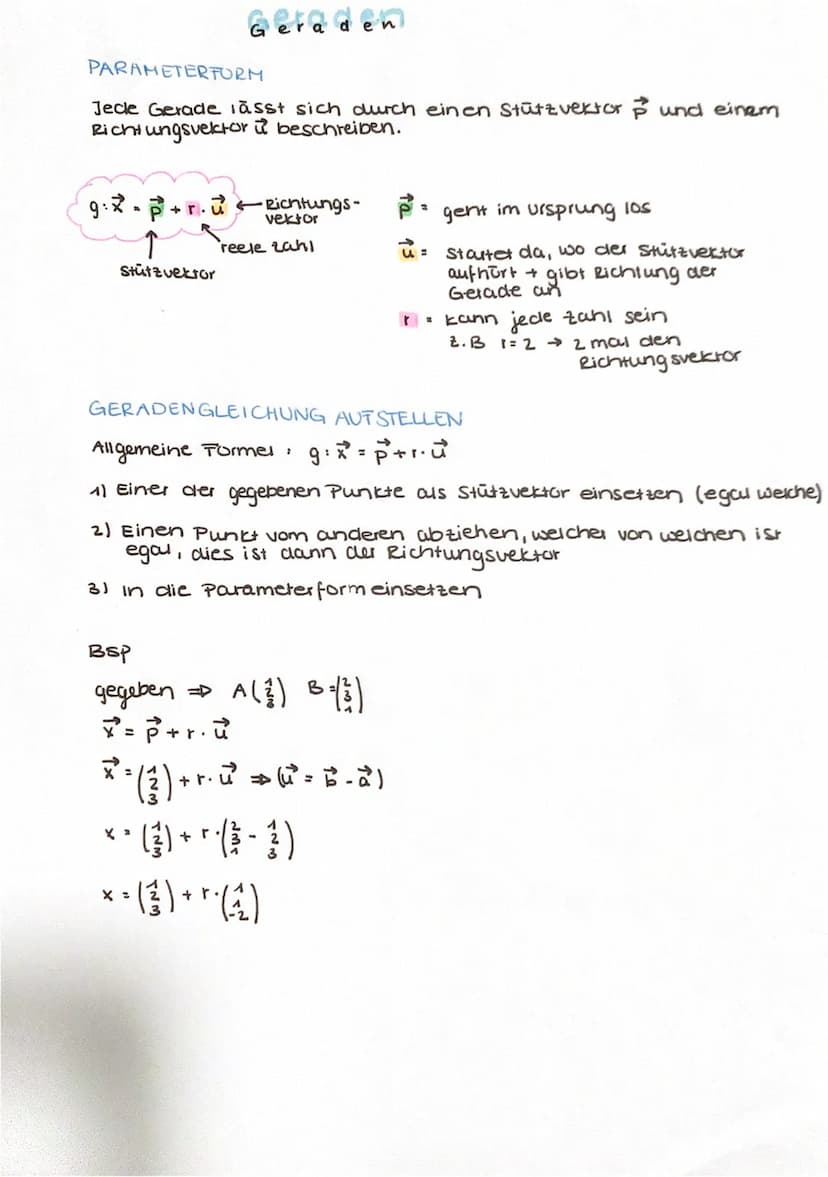 Geraden
PARAMETERFORM
Jede Gerade lässt sich durch einen Stützvektor p⃗ und einem
Richtungsvektor u⃗ beschreiben.
g: x⃗ = p⃗ + r · u⃗ ← Richtungs-
vektor
reele Zahl
Stützvektor
p⃗ = geht im Ursprung los
u⃗ = startet da, wo der Stützvektor
aufhört + gibt Richtung der
Gerade an
r = kann jede Zahl sein
z.B r=2 → 2 mal den
Richtungsvektor
GERADENGLEICHUNG AUFSTELLEN
Allgemeine Formel : g: x⃗ = p⃗ + r · u⃗
1) Einer der gegebenen Punkte als Stützvektor einsetzen (egal welche)
2) Einen Punkt vom anderen abziehen, welcher von welchen ist
egal, dies ist dann der Richtungsvektor
3) in die Parameterform einsetzen
BSP
gegeben ⇒ A(1 2 3) B=(2 3 1)
x⃗ = p⃗ + r · u⃗
x⃗ = (1 2 3) + r · u⃗ ⇒ (u⃗ = b⃗ - a⃗)
x = (1 2 3) + r · (2 3 1 - 1 2 3)
x = (1 2 3) + r · (1 1 -2)